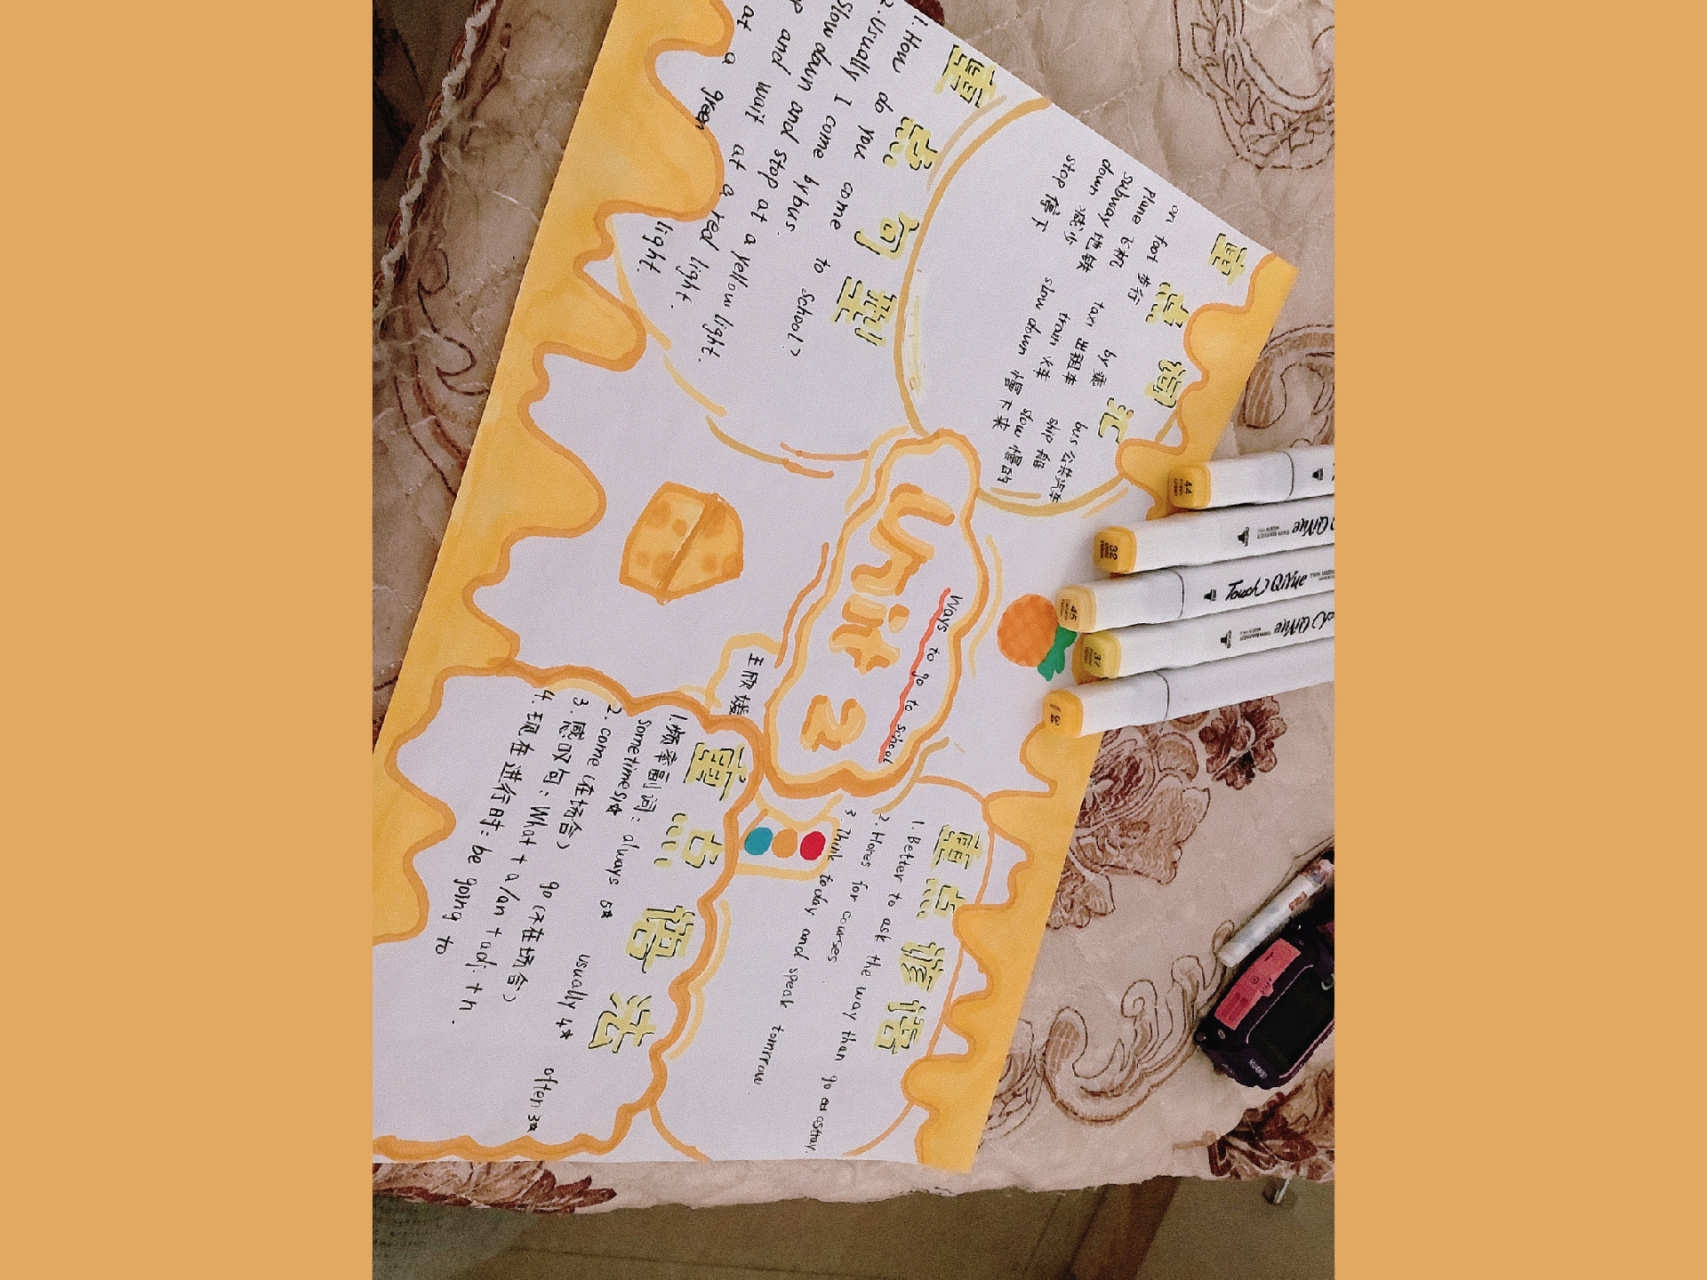 Unit 2
Ways to go to school
王欣媛
重点句型
1. How do you come to school?
2. Usually I come by bus.
Slow down and stop at a yellow light.
and wait at a red light.
at a green light.
重点词汇
on foot 步行 by 乘 bus 公共汽车
plane 飞机 taxi 出租车 ship 船
subway 地铁 train 火车 slow 慢的
down 减少 slow down 慢下来
stop 停下
重点语法
1.频率副词: always 5☆ usually 4☆ often 3☆
sometimes 1☆
2. come (在场合) go (不在场合)
3. 感叹句: What + a /an + adj. + n.
4. 现在进行时: be going to
重点谚语
1. Better to ask the way than go as astray.
2. Hores for courses
3. Think today and speak tomrrow
44
32
45
37
Touch QiYue
QiYue
QiYue